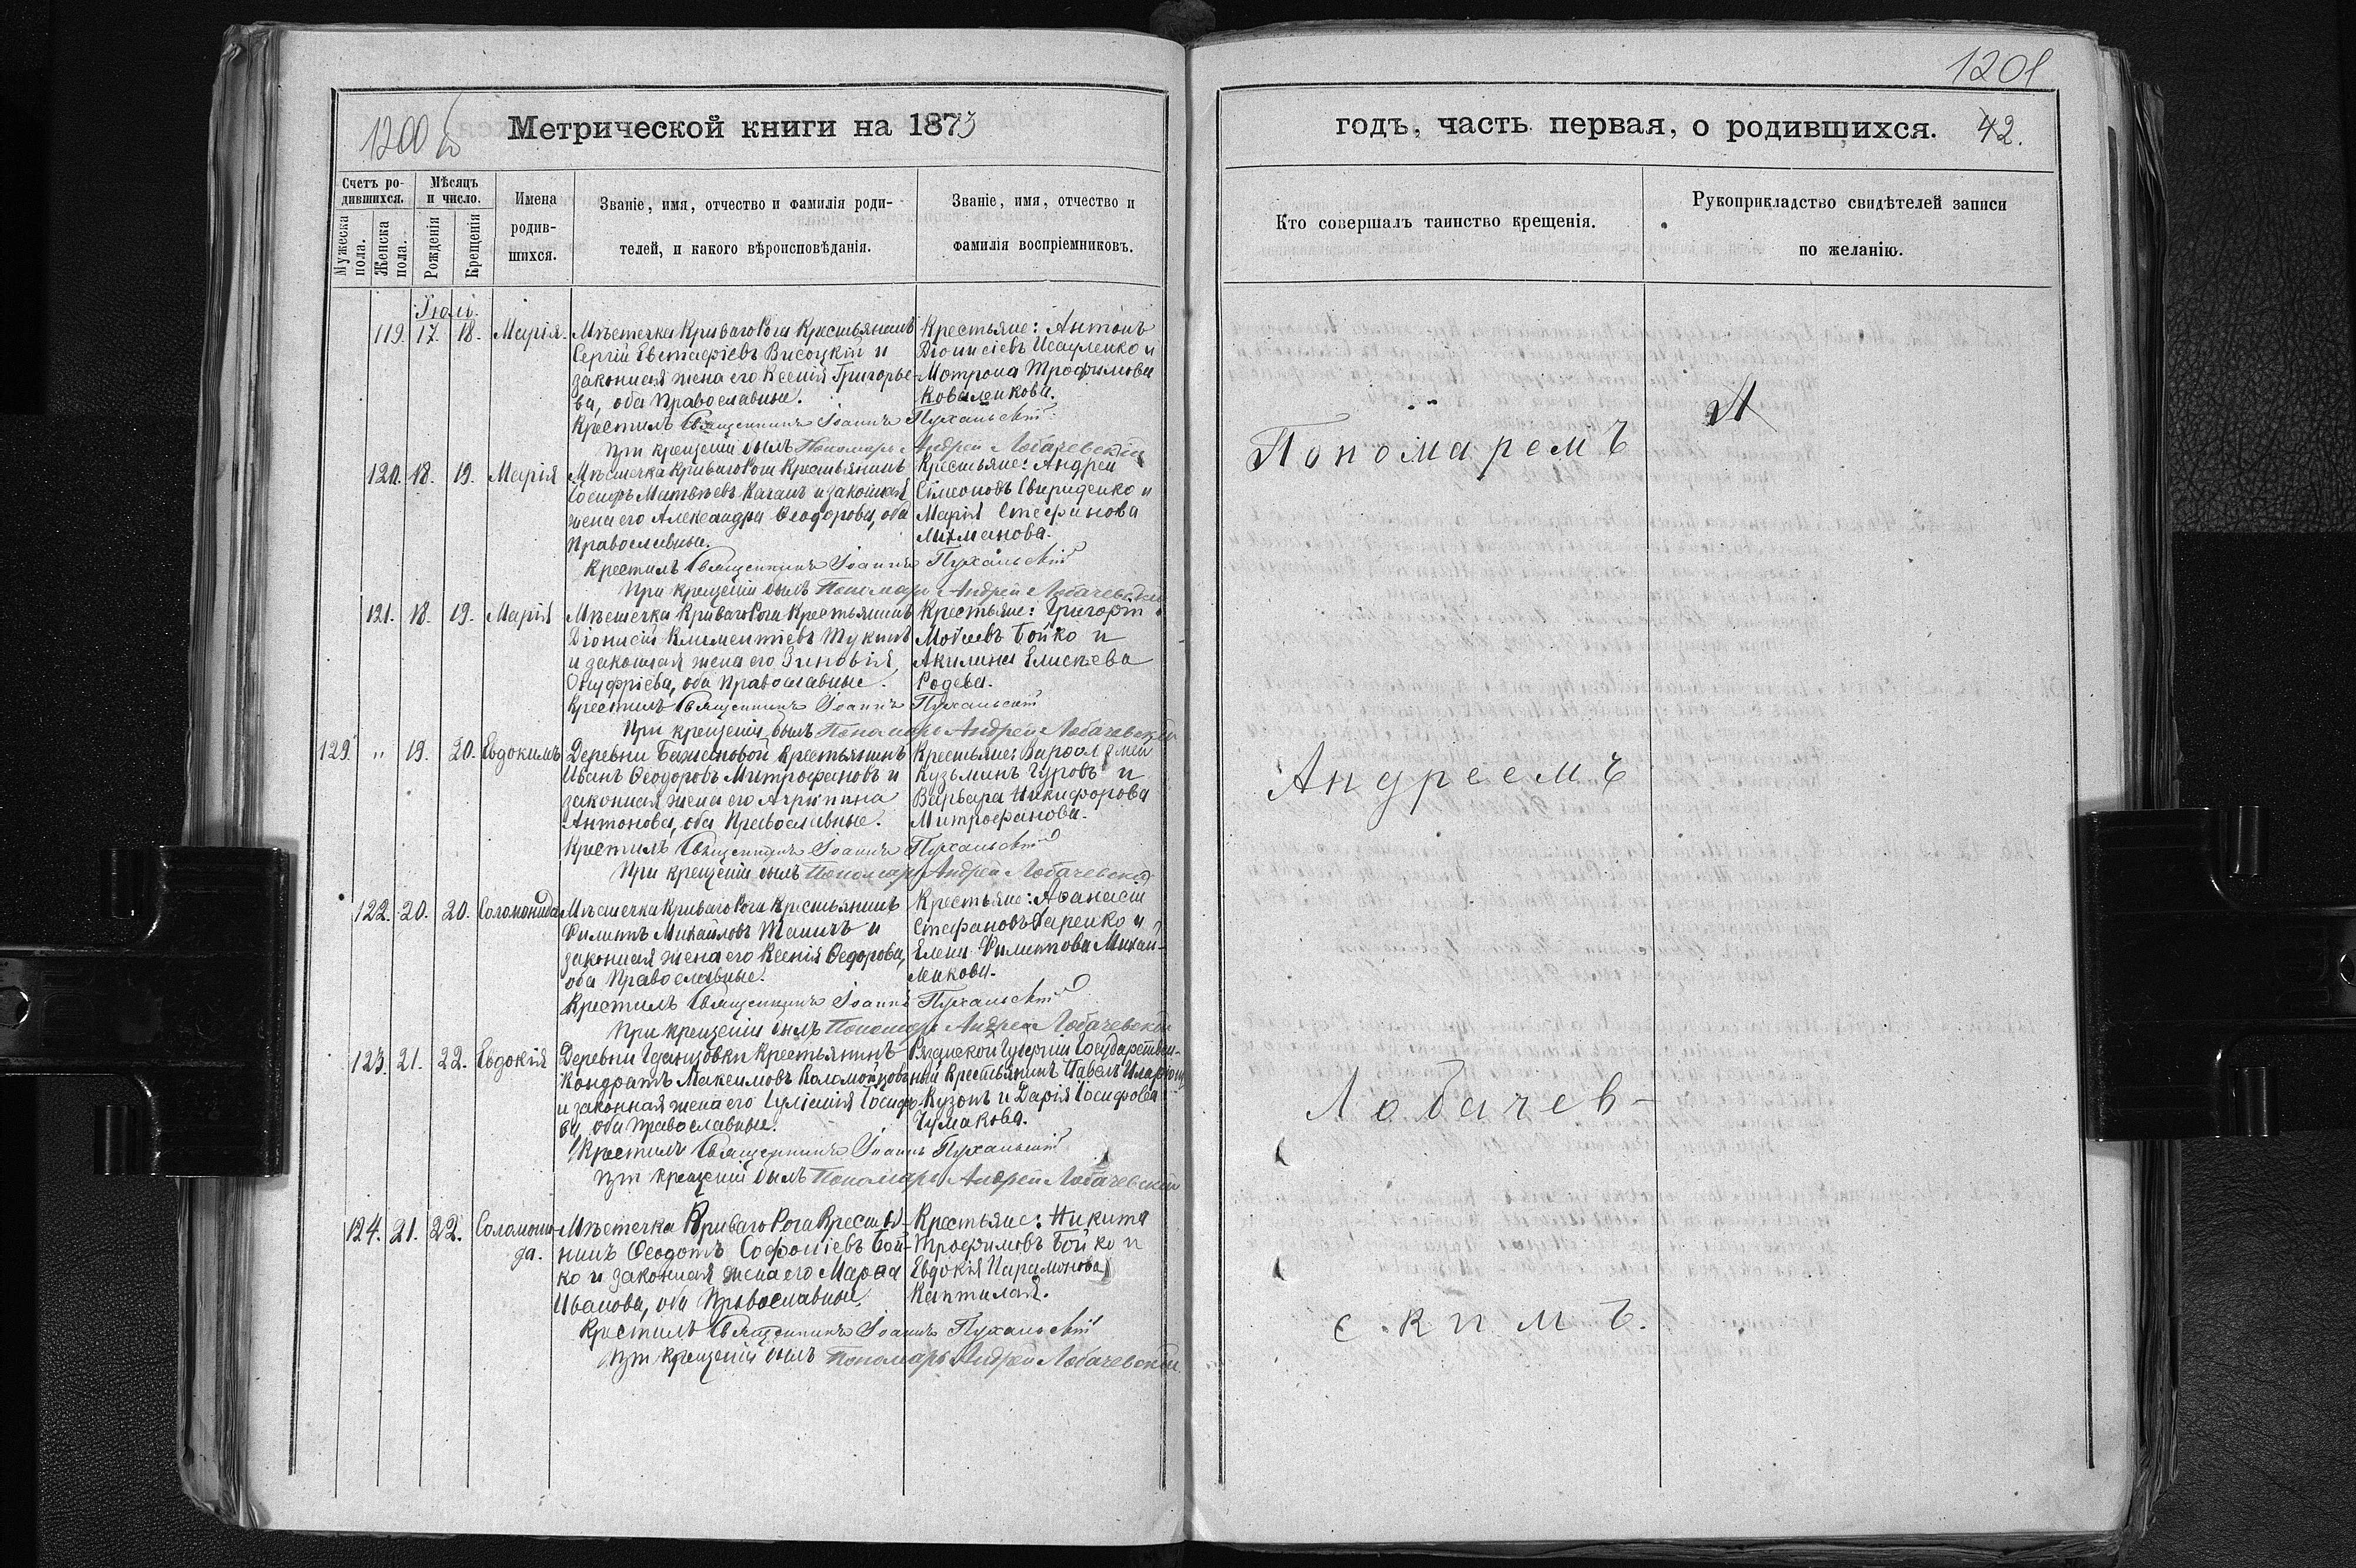 1200 об
Метрической книги на 1873
Счетъ ро-
дившихся.
Мужеска пола.
Женска пола.
Мѣсяцъ
и число.
Рожденія
Крещенія
Имена
родив-
шихся.
Званіе, имя, отчество и фамилія роди-
телей, и какого вѣроисповѣданія.
Званіе, имя, отчество и
фамилія воспріемниковъ.
Іюль.
119. 17. 18. Марія. Мѣстечка Криваго Рога Крестьянинъ
Сергій Евстафіевъ Висоцкій и
законная жена его Ксенія Григорье-
ва, оба Православные.
Крестьяне: Антонъ
Діонисіевъ Исауленко и
Мотрона Трофимова
Коваленкова.
Крестилъ Священникъ Іоаннъ Пухальскій
При крещеніи былъ Пономарь Андрей Лобачевскій
120. 18. 19. Марія Мѣстечка Криваго Рога Крестьянинъ
Іосифъ Матвѣевъ Качанъ и законная
жена его Александра Ѳеодорова, оба
Православные.
Крестьяне: Андрей
Сімеоновъ Свириденко и
Марія Стефанова
Лихманова.
Крестилъ Священникъ Іоаннъ Пухальскій
При крещеніи былъ Пономарь Андрей Лобачевскій
121. 18. 19. Марія Мѣстечка Криваго Рога Крестьянинъ
Діонисій Климентіевъ Тукинъ
и законная жена его Зиновія
Онуфріева, оба Православные.
Крестьяне: Григорій
Моѵсеевъ Бойко и
Акилина Елисѣева
Родева.
Крестилъ Священникъ Іоаннъ Пухальскій
При крещеніи былъ Пономарь Андрей Лобачевскій
129. " 19. 20. Евдокимъ Деревни Бажановой Крестьянинъ
Иванъ Ѳеодоровъ Митрофановъ и
законная жена его Агрипина
Антонова, оба Православные.
Крестьяне: Варѳоломей
Кузьминъ Гуровъ и
Варвара Никифорова
Митрофанова.
Крестилъ Священникъ Іоаннъ Пухальскій
При крещеніи былъ Пономарь Андрей Лобачевскій
122. 20. 20. Соломонида Мѣстечка Криваго Рога Крестьянинъ
Филиппъ Михайловъ Таничъ и
законная жена его Ксенія Ѳедорова,
оба Православные.
Крестьяне: Аѳанасій
Стефановъ Царенко и
Елена Филиппова Михай-
ленкова.
Крестилъ Священникъ Іоаннъ Пухальскій
При крещеніи былъ Пономарь Андрей Лобачевскій
123. 21. 22. Евдокія Деревни Крестьянинъ
Кондратъ Максимовъ Коломойцовъ
и законная жена его Іуліанія Іосифо-
ва, оба Православные.
Рязанской Губерніи Государствен-
ный Крестьянинъ Павелъ Иларіоновъ
Кузонъ и Дарія Іосифова
Чумакова.
Крестилъ Священникъ Іоаннъ Пухальскій
При крещеніи былъ Пономарь Андрей Лобачевскій
124. 21. 22. Соломони-
да. Мѣстечка Криваго Рога Крестья-
нинъ Ѳеодотъ Софоніевъ Бой-
ко и законная жена его Марѳа
Иванова, оба Православные.
Крестьяне: Никита
Трофимовъ Бойко и
Евдокія Парамонова
Каптилая.
Крестилъ Священникъ Іоаннъ Пухальскій
При крещеніи былъ Пономарь Андрей Лобачевскій.
1201
годъ, часть первая, о родившихся. 42.
Кто совершалъ таинство крещенія.
Рукоприкладство свидѣтелей записи
по желанію.
Пономаремъ
Андреемъ
Лобачев-
скимъ.